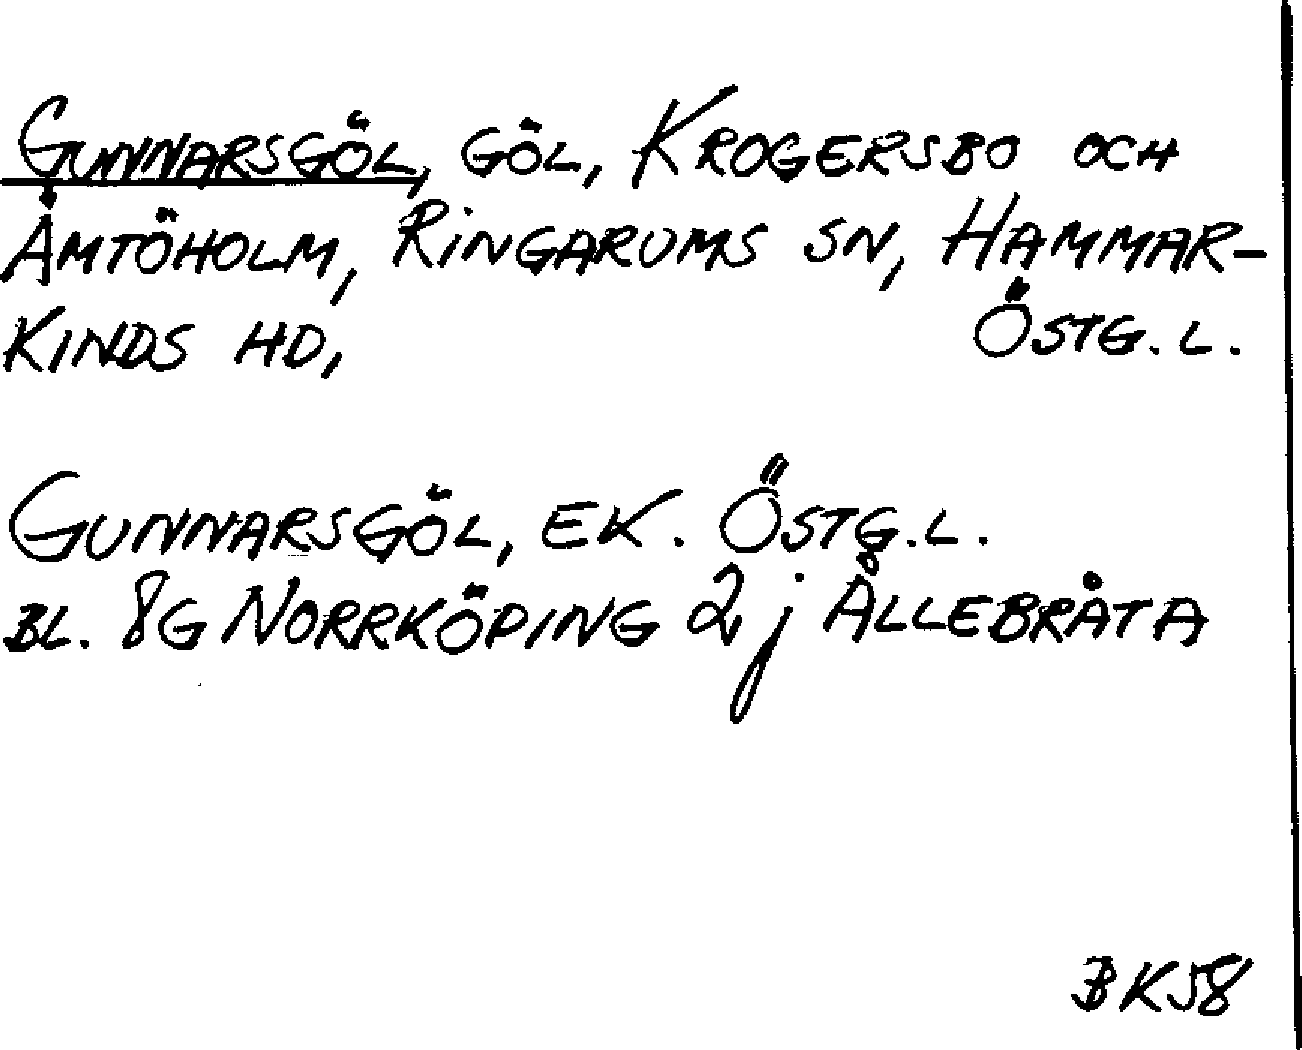 GUNNARSGÖL, GÖL, KROGERSBO OCH
ÅMTÖHOLM, RINGARUMS SN, HAMMAR-
KINDS HD, ÖSTG. L.
GUNNARSGÖL, EK. ÖSTG. L.
BL. 8G NORRKÖPING 2j ÅLLEBRÅTA
BK58